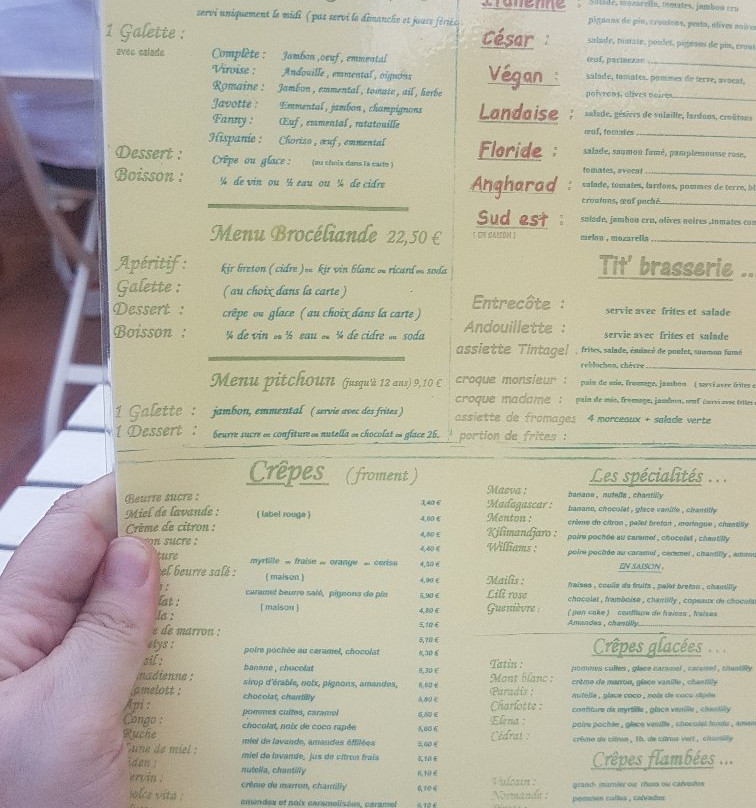 servi uniquement le midi ( pas servi le dimanche et jours fériés
1 Galette :
avec salade
Complète : Jambon, oeuf, emmental
Viroise : Andouille, emmental, oignons
Romaine : Jambon, emmental, tomate, ail, herbe
Javotte : Emmental, jambon, champignons
Fanny : Œuf, emmental, ratatouille
Hispanie : Chorizo, œuf, emmental
Dessert : Crêpe ou glace : (au choix dans la carte )
Boisson : ¼ de vin ou ½ eau ou ¼ de cidre
Menu Brocéliande 22,50 €
Apéritif : kir breton ( cidre ) ou kir vin blanc ou ricard ou soda
Galette : ( au choix dans la carte )
Dessert : crêpe ou glace ( au choix dans la carte )
Boisson : ¼ de vin ou ½ eau ou ¼ de cidre ou soda
Menu pitchoun (jusqu'à 12 ans) 9,10 €
1 Galette : jambon, emmental ( servie avec des frites )
1 Dessert : beurre sucre ou confiture ou nutella ou chocolat ou glace 2b.
Italienne : Salade, mozzarella, tomates, jambon cru
pignons de pin, croutons, pesto, olives noires
César : salade, tomate, poulet, pignons de pin,
œuf, parmesan
Végan : salade, tomates, pommes de terre, avocat,
poivrons, olives noires
Landaise : salade, gésiers de volaille, lardons, croûtons
œuf, tomates
Floride : salade, saumon fumé, pamplemousse rose,
tomates, avocat
Angharad : salade, tomates, lardons, pommes de terre,
croutons, œuf poché
Sud est : salade, jambon cru, olives noires ,tomates
( EN SAISON ) melon , mozarella
Tit' brasserie ...
Entrecôte : servie avec frites et salade
Andouillette : servie avec frites et salade
assiette Tintagel : frites, salade, émincé de poulet, saumon fumé
reblochon, chèvre
croque monsieur : pain de mie, fromage, jambon ( servi avec frites
croque madame : pain de mie, fromage, jambon, œuf (servi avec frites
assiette de fromages 4 morceaux + salade verte
portion de frites :
Crêpes (froment )
Beurre sucre : 3,40 €
Miel de lavande : ( label rouge ) 4,60 €
Crème de citron : 4,80 €
on sucre : 4,40 €
ture myrtille ou fraise ou orange ou cerise 4,50 €
el beurre salé : ( maison ) 4,90 €
caramel beurre salé, pignons de pin 5,90 €
lat : ( maison ) 4,80 €
la : 5,10 €
e de marron : 5,10 €
elys : poire pochée au caramel, chocolat 6,30 €
banane , chocolat 6,30 €
nadienne : sirop d'érable, noix, pignons, amandes, 6,60 €
amelott : chocolat, chantilly
Api : pommes cuites, caramel
Congo : chocolat, noix de coco rapée
Ruche miel de lavande, amandes éffilées
Lune de miel : miel de lavande, jus de citron frais
nutella, chantilly
ervin : crème de marron, chantilly
dolce vita : amandes et noix caramelisées, caramel
Les spécialités ...
Maeva : banane , nutella , chantilly
Madagascar : banane, chocolat , glace vanille , chantilly
Menton : crème de citron , palet breton , meringue , chantilly
Kilimandjaro : poire pochée au caramel , chocolat , chantilly
Williams : poire pochée au caramel , caramel , chantilly ,
EN SAISON .
Maïlis : fraises , coulis de fruits , palet breton , chantilly
Lili rose chocolat , framboise , chantilly , copeaux de
Guenièvre : ( pan cake ) confiture de fraises , fraises
Amandes , chantilly
Crêpes glacées ...
Tatin : pommes cuites , glace caramel , caramel , chantilly
Mont blanc : crème de marron, glace vanille , chantilly
Paradis : nutella , glace coco , noix de coco râpée
Charlotte : confiture de myrtille , glace vanille , chantilly
Elena : poire pochée , glace vanille , chocolat fondu ,
Cédrat : crème de citron , 1b. de citron vert , chantilly
Crêpes flambées ...
Vulcain : grand marnier ou rhum ou calvados
Normande : pommes cuites , calvados